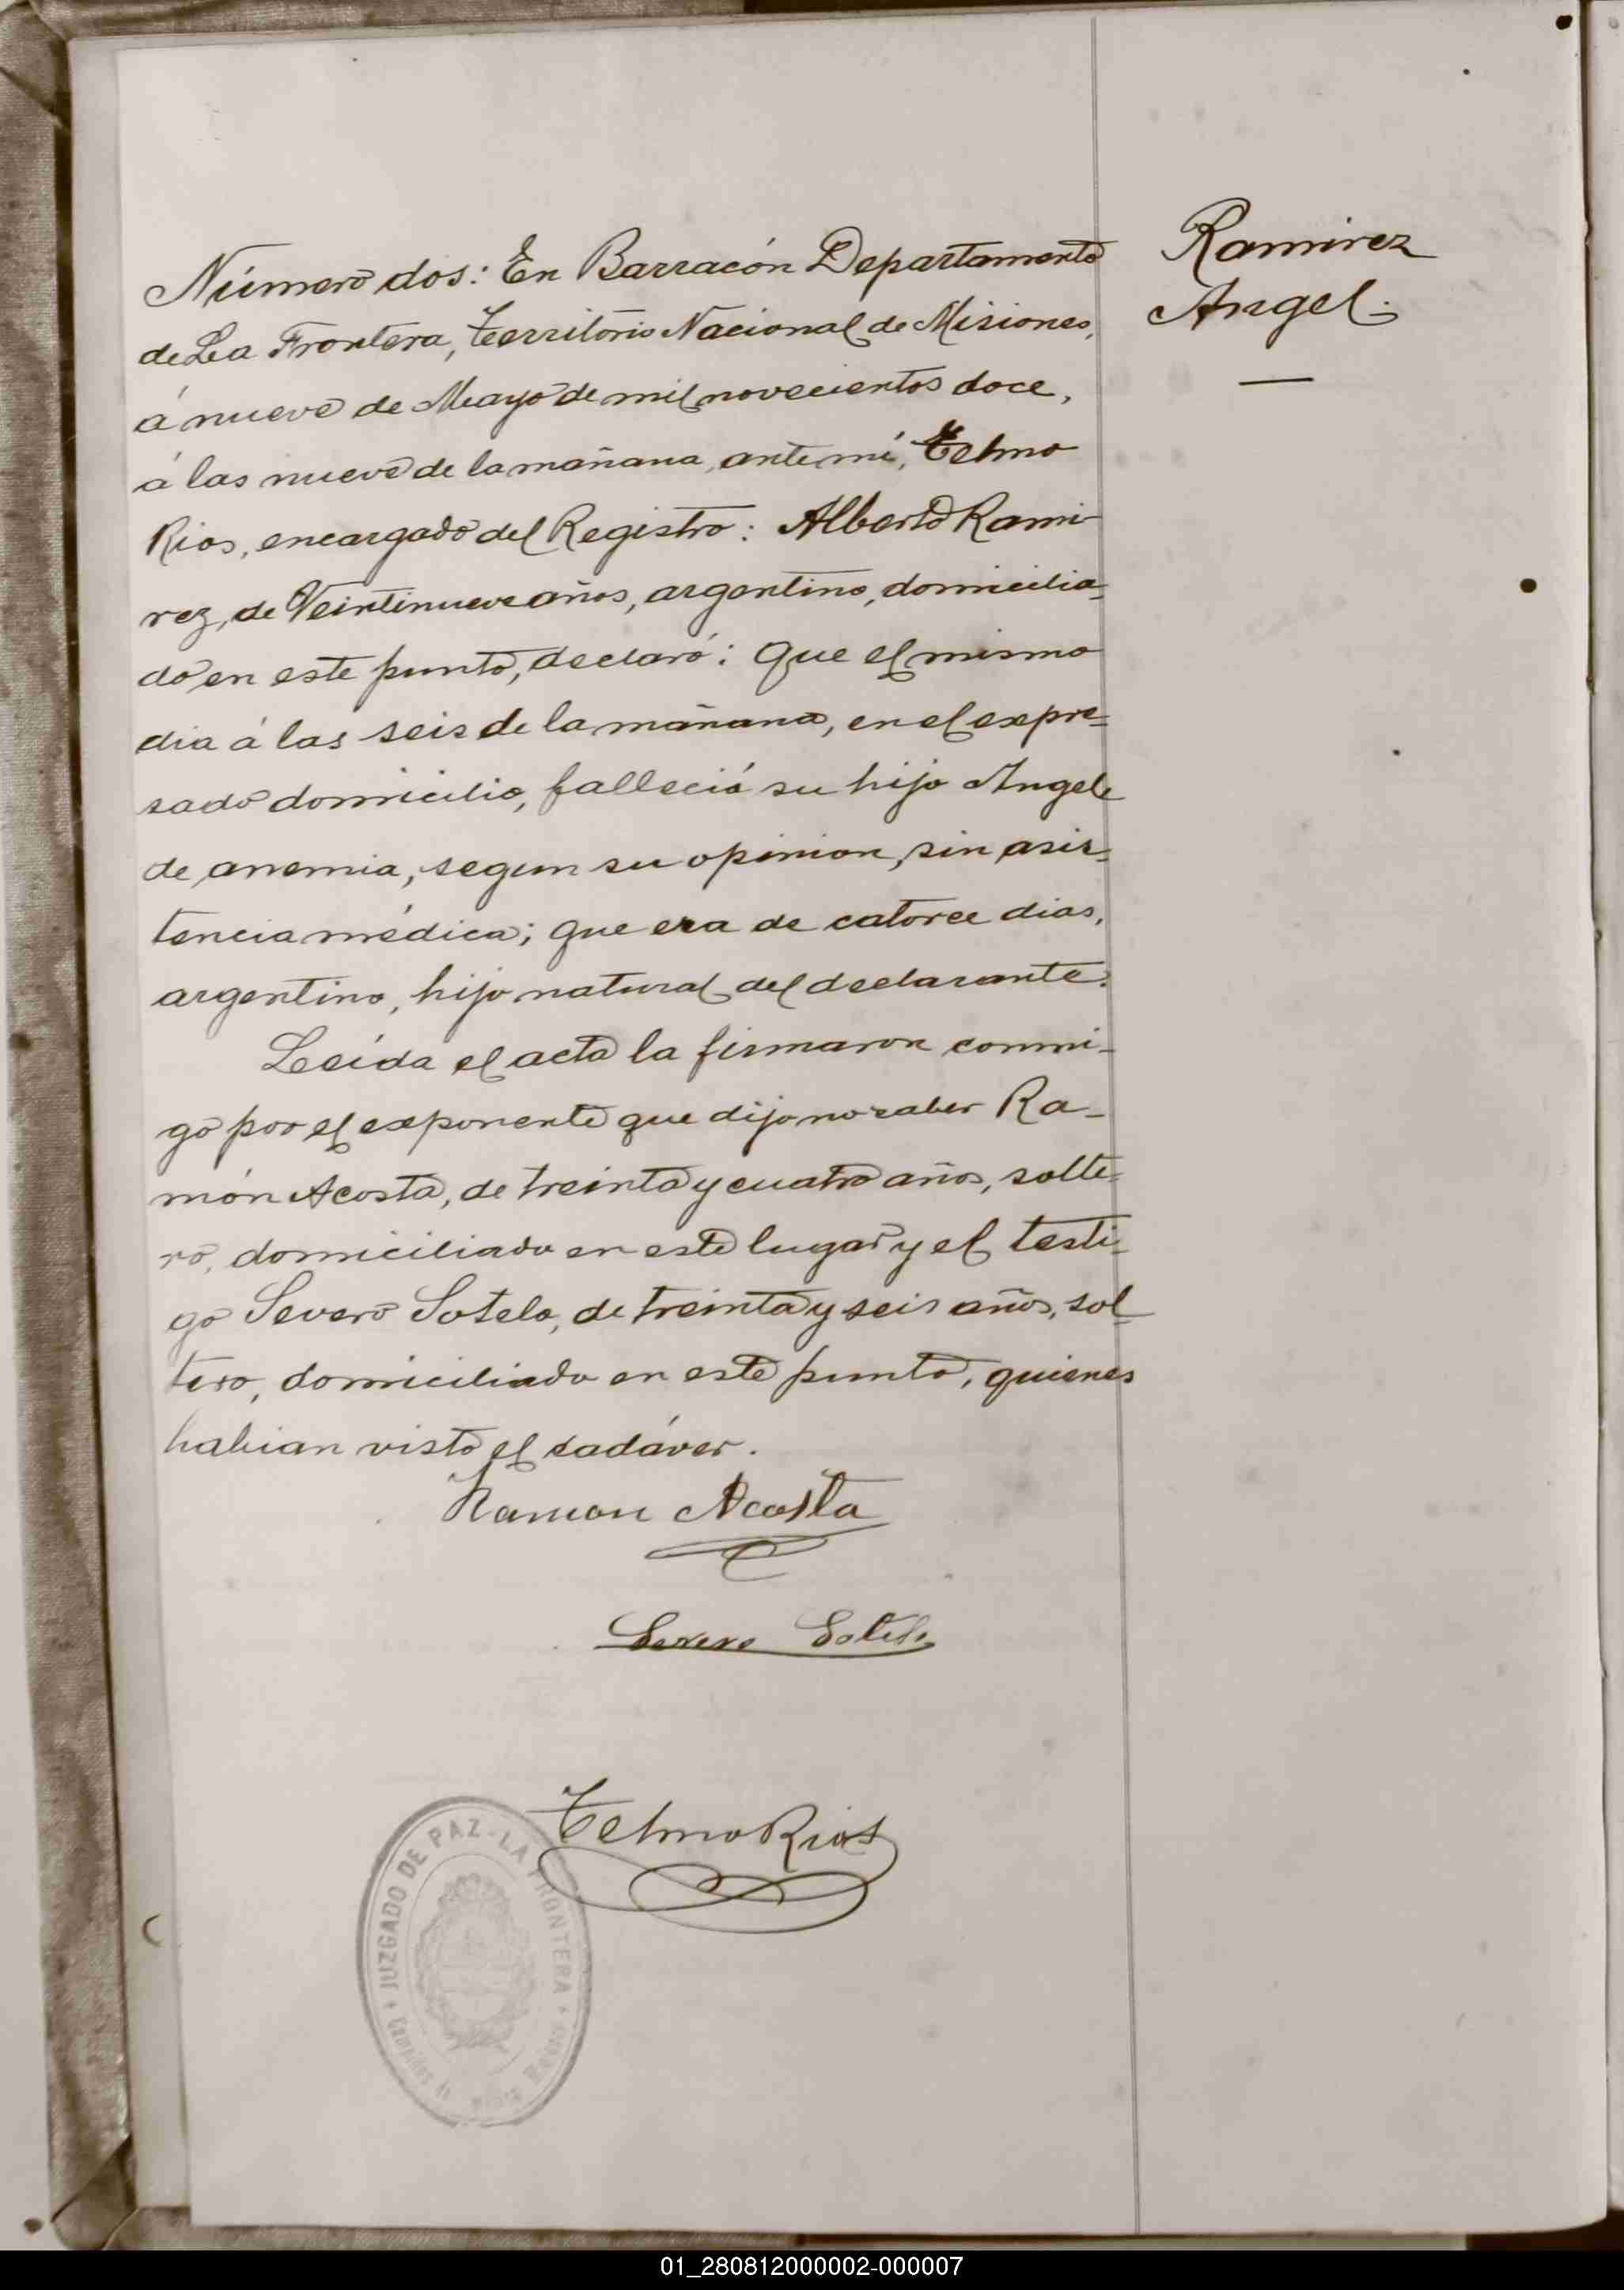 Ramirez
Angel.
Número dos: En Barracón Departamento
de La Frontera, Territorio Nacional de Misiones,
á nueve de Mayo de mil novecientos doce,
á las nueve de la mañana, ante mí, Telmo
Rios, encargado del Registro: Alberto Rami-
rez, de Veintinueve años, argentino, domicilia-
do en este punto, declaró: Que el mismo
dia á las seis de la mañana, en el expre-
sado domicilio, falleció su hijo Angel
de anemia, segun su opinion, sin asis-
tencia médica; que era de catorce dias,
argentino, hijo natural del declarante.
Leída el acta la firmaron conmi-
go por el exponente que dijo no saber Ra-
món Acosta, de treinta y cuatro años, solte-
ro, domiciliado en este lugar y el testi-
go Severo Sotelo, de treinta y seis años, sol-
tero, domiciliado en este punto, quienes
habian visto el cadáver.
Ramon Acosta
Severo Sotelo
Telmo Rios
JUZGADO DE PAZ - LA FRONTERA
01_280812000002-000007